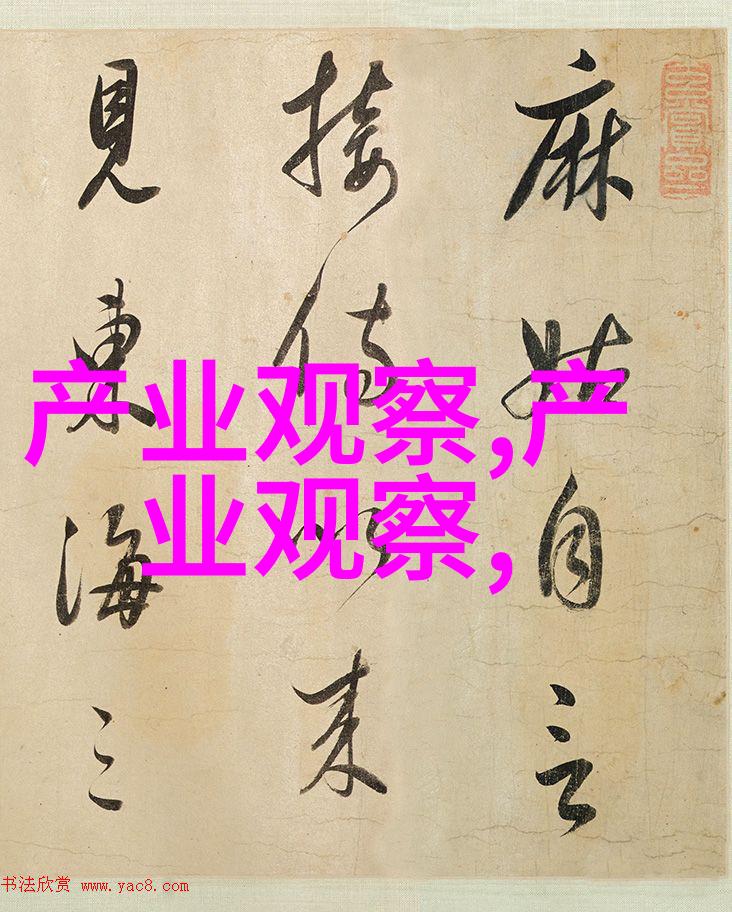 麻姑自言
接侍以来
見東海三
产业观察,产
业观察,
书法欣赏 www.yac8.com